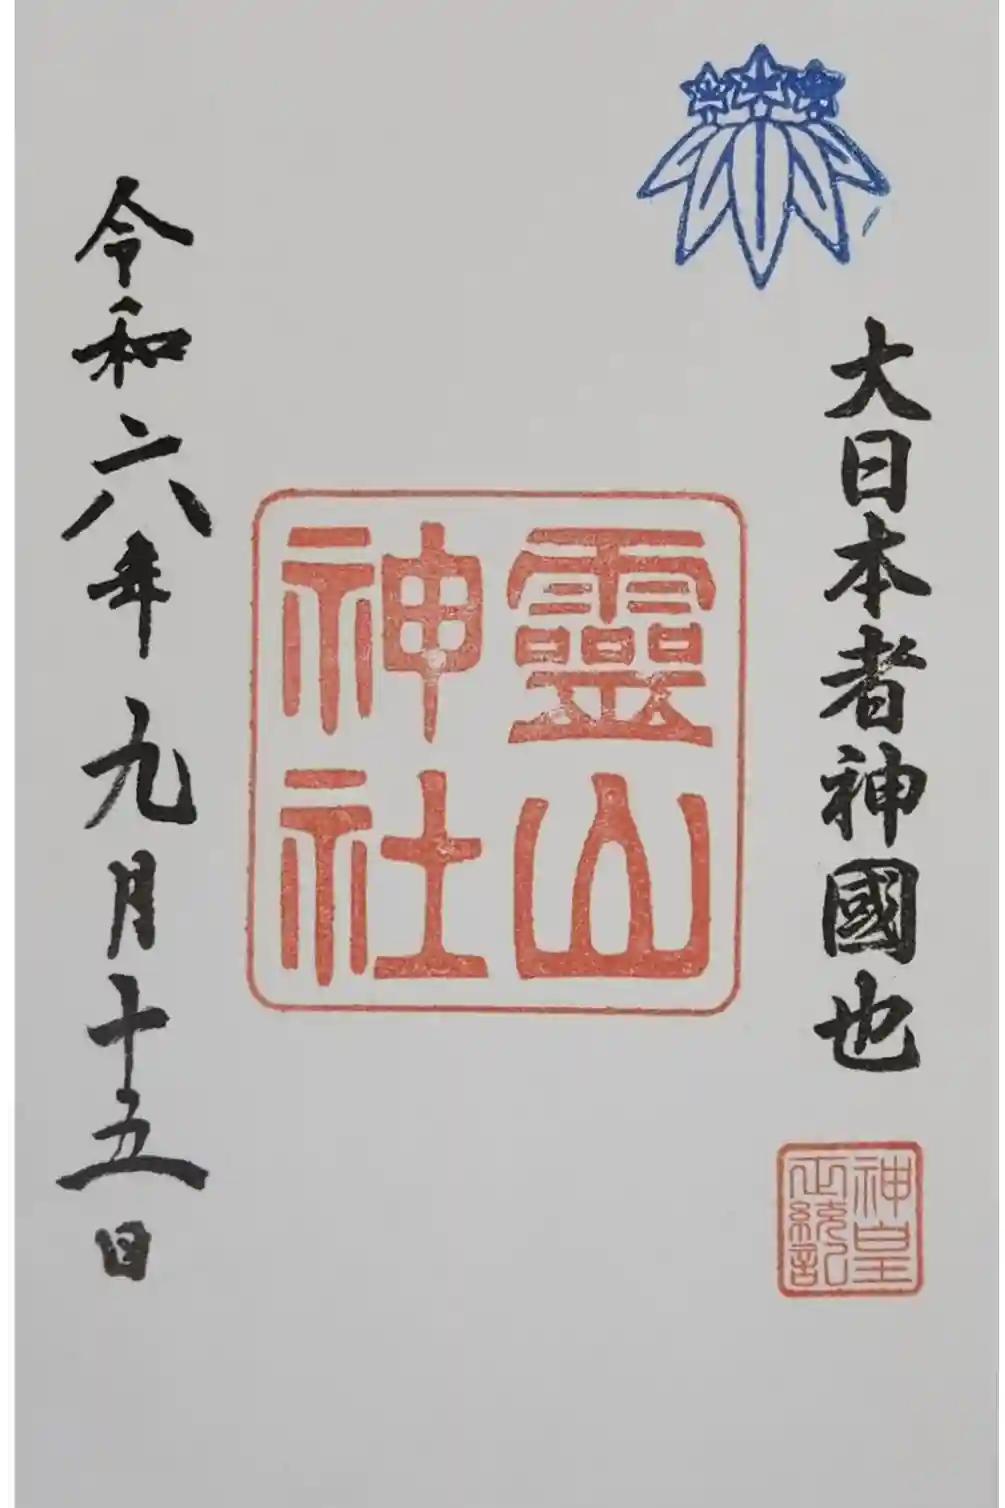 大日本者神國也
神皇
正統記
靈山
神社
令和六年九月十五日